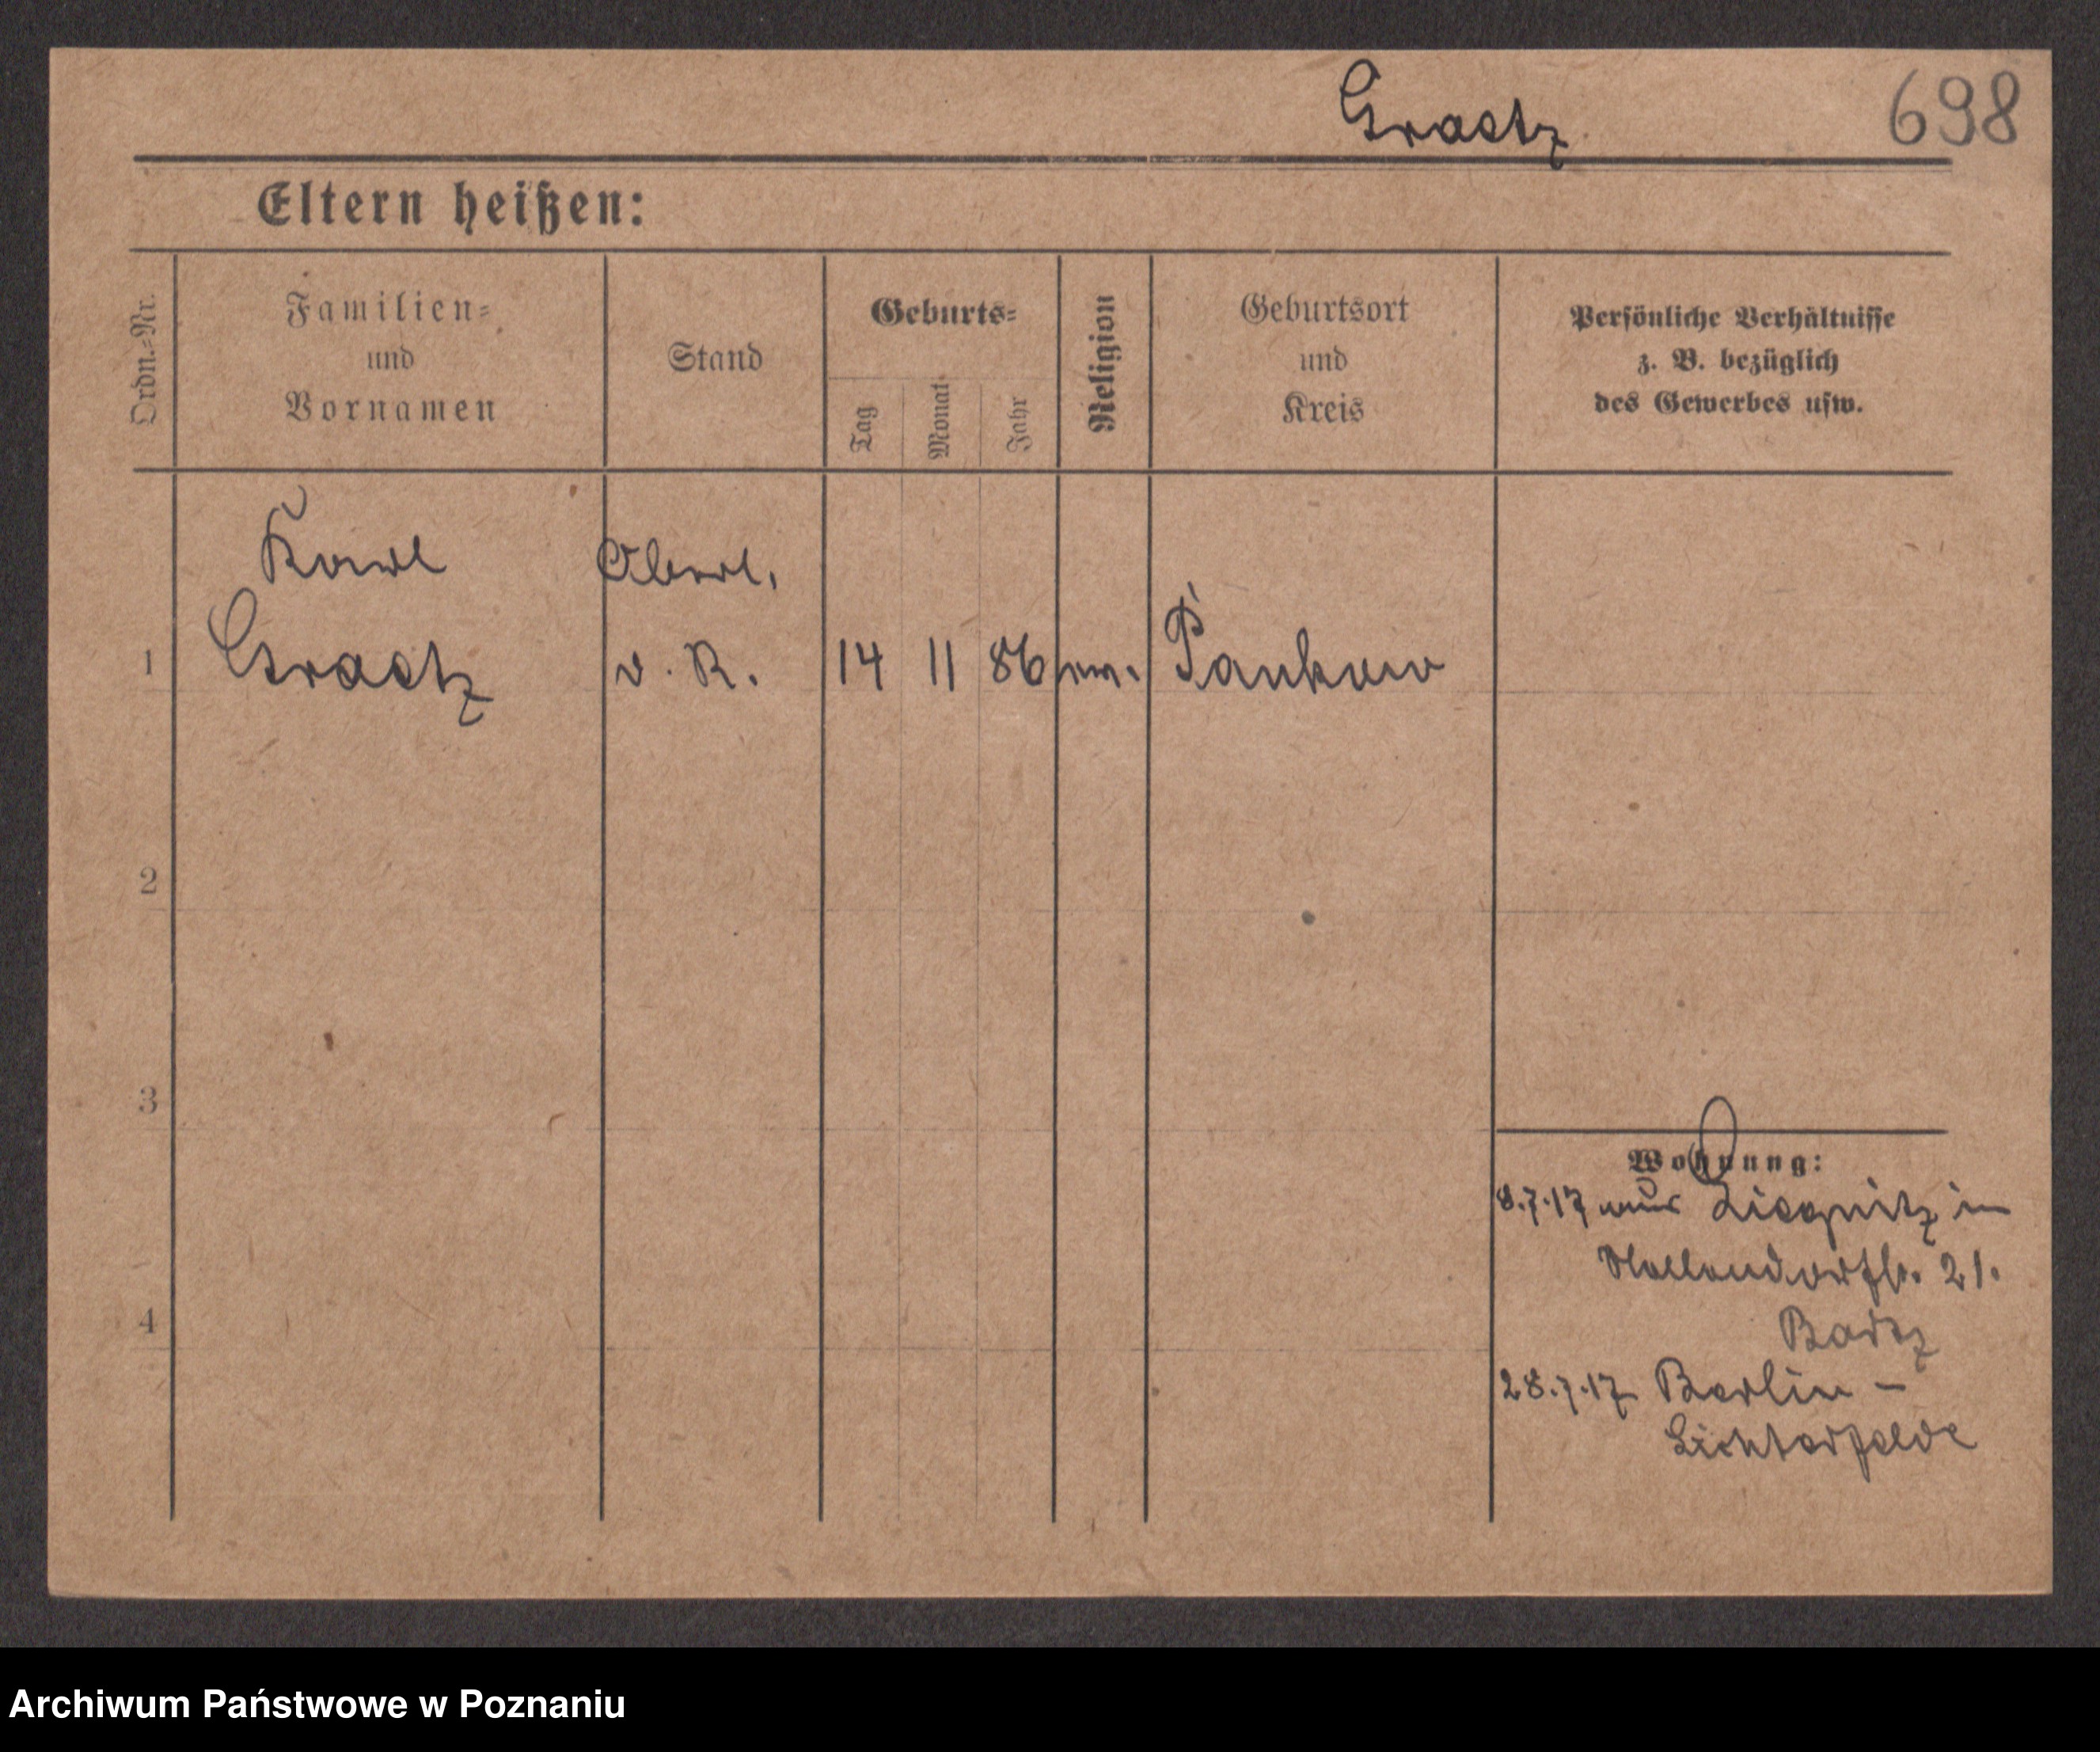 Graetz
698
Eltern heißen:
Ordn.=Nr.
Familien=
und
Vornamen
Stand
Geburts=
Tag
Monat
Jahr
Religion
Geburtsort
und
Kreis
Persönliche Verhältnisse
z. B. bezüglich
des Gewerbes usw.
Karl
Oberl.
1 Graetz d. R. 14 11 86 Pankow
2
3
4
Wohnung:
8.7.17 aus Liegnitz in
21.
28.7.17 Berlin -
Lichterfelde
Archiwum Państwowe w Poznaniu